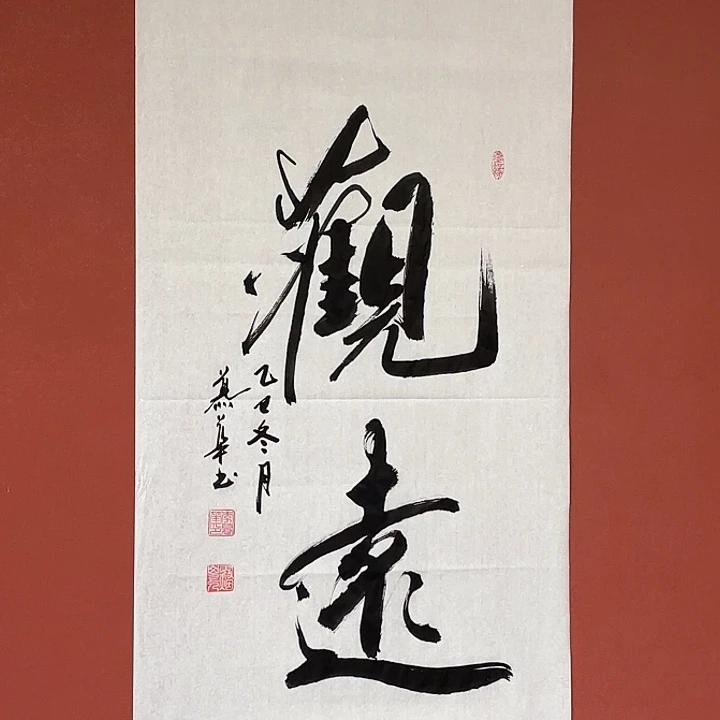 觀遠
乙巳冬月
燕華书